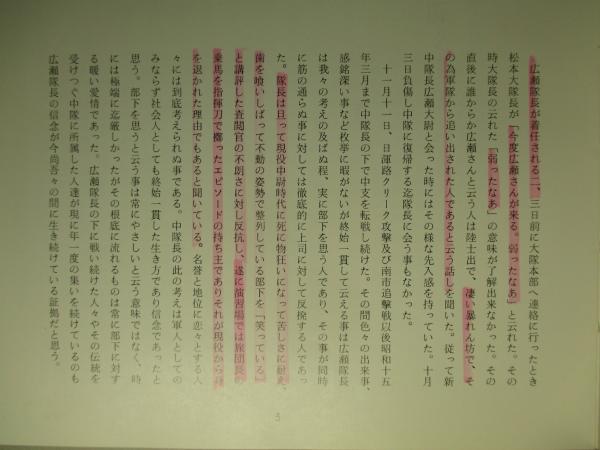 広瀬隊長が着任される二、三日前に大隊本部へ連絡に行ったとき
松本大隊長が「今度広瀬さんが来る。弱ったなあ」と云れた。その
時大隊長の云れた「弱ったなあ」の意味が了解出来なかった。その
直後に誰からか広瀬さんと云う人は陸士出で、凄い暴れん坊で、そ
の為軍隊から追い出された人であると云う話しを聞いた。従って新
中隊長広瀬大尉と会った時にはその様な先入感を持っていた。十月
三日負傷し中隊に復帰する迄隊長に会う事もなかった。
十一月十一日、日暉路クリーク攻撃及び南市追撃戦以後昭和十五
年三月まで中隊長の下で中支を転戦し続けた。その間色々の出来事、
感銘深い事など枚挙に暇がないが終始一貫して云える事は広瀬隊長
は我々の考えの及ばぬ程、実に部下を思う人であり、その事が同時
に筋の通らぬ事に対しては徹底的に上司に対して反撥する人であっ
た。隊長は且って現役中尉時代に死に物狂いになって苦しさに耐え、
歯を喰いしばって不動の姿勢で整列している部下を「笑っている」
と講評した査閲官の不明さに対し反抗し、遂に演習場では旅団長の
乗馬を指揮刀で擲ったエピソードの持ち主でありそれが現役から身
を退かれた理由でもあると聞いている。名誉と地位に恋々とする人
々には到底考えられぬ事である。中隊長の此の考えは軍人としての
みならず社会人としても終始一貫した生き方であり信念であったと
思う。部下を思うと云う事は常にやさしいと云う意味ではなく、時
には極端に迄厳しかったがその根底に流れるものは常に部下に対す
る暖い愛情であった。広瀬隊長の下に戦い続けた人々やその伝統を
受けつぐ中隊に所属した人達が現に年一度の集いを続けているのも
広瀬隊長の信念が今尚吾々の間に生き続けている証拠だと思う。
5